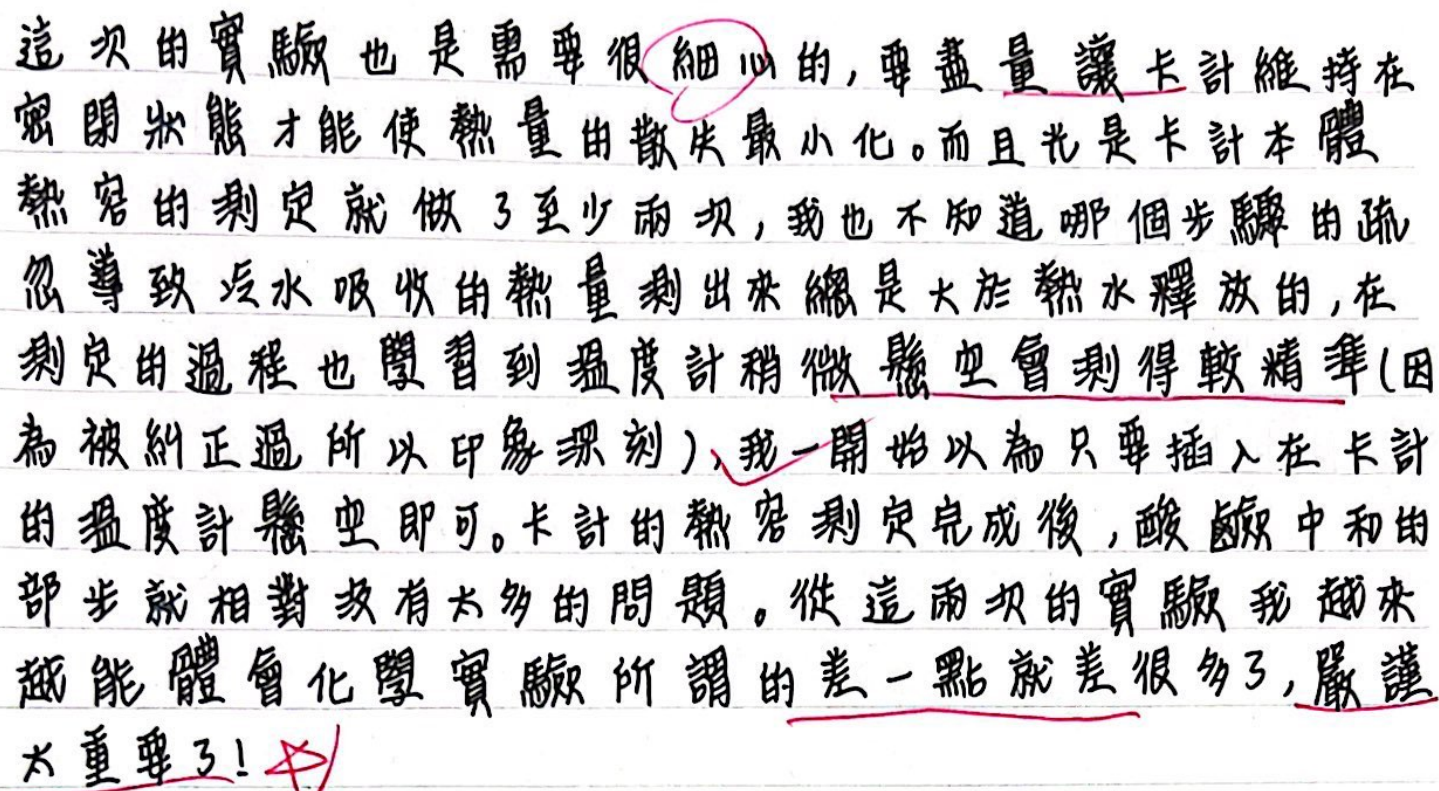 這次的實驗也是需要很細心的,要盡量讓卡計維持在
密閉狀態才能使熱量的散失最小化。而且光是卡計本體
熱容的測定就做了至少兩次,我也不知道哪個步驟的疏
忽導致冷水吸收的熱量測出來總是大於熱水釋放的,在
測定的過程也學習到溫度計稍微懸空會測得較精準(因
為被糾正過所以印象深刻),我一開始以為只要插入在卡計
的溫度計懸空即可。卡計的熱容測定完成後,酸鹼中和的
部步就相對沒有太多的問題。從這兩次的實驗我越來
越能體會化學實驗所謂的差一點就差很多了,嚴謹
太重要了!